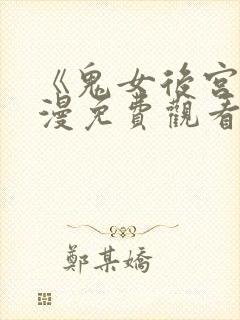 《鬼女後宮
漫免費觀看
鄭某嬌